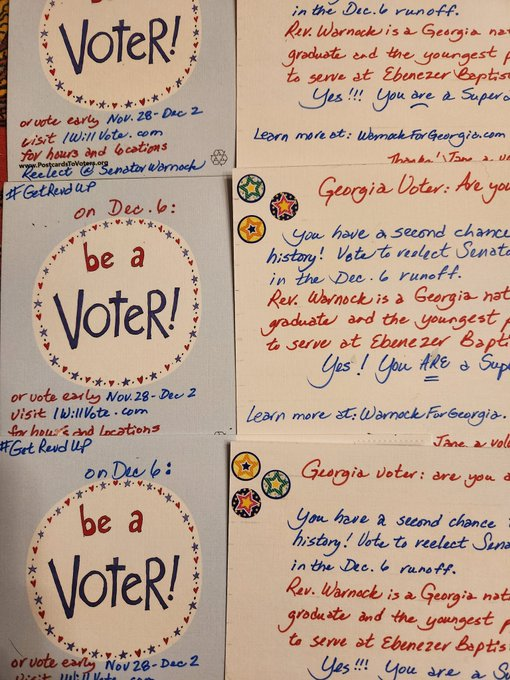 VOTER!
or vote early Nov. 28-Dec 2
visit IWillVote.com
for hours and locations
www.PostcardsToVoters.org
Reelect @SenatorWarnock
in the Dec. 6 runoff.
Rev. Warnock is a Georgia nat
graduate and the youngest p
to serve at Ebenezer Baptis
Yes!!! You are a Super
Learn more at: WarnockForGeorgia.com
Thanks! Jane, a vo
#GetRevdUP
on Dec. 6:
be a
VOTER!
or vote early Nov. 28-Dec 2
visit IWillVote.com
for hours and locations
Georgia Voter: Are you
You have a second chance
history! Vote to reelect Senato
in the Dec. 6 runoff.
Rev. Warnock is a Georgia nat
graduate and the youngest p
to serve at Ebenezer Bapti
Yes! You ARE a Sup
Learn more at: WarnockForGeorgia.
Jane, a vol
#GetRevdUP
on Dec 6:
be a
VOTER!
or vote early Nov 28-Dec 2
visit IWillVote.com
Georgia voter: are you a
You have a second chance
history! Vote to reelect Sena
in the Dec. 6 runoff.
Rev. Warnock is a Georgia n
graduate and the youngest p
to serve at Ebenezer Baptis
Yes!!! You are a S